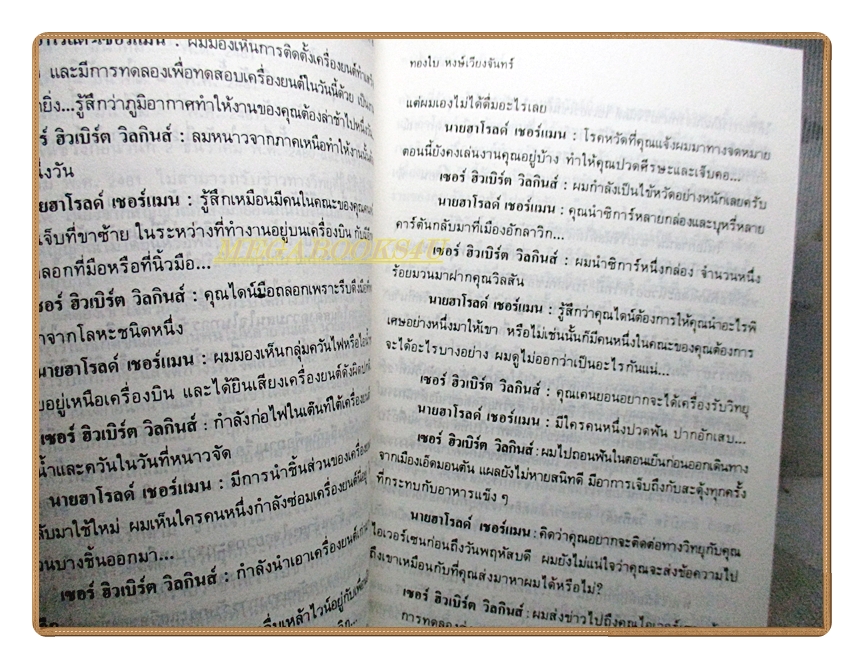 นายฮาโรลด์ เชอร์แมน : ผมมองเห็นการติดตั้งเครื่องยนต์
และมีการทดลองเพื่อทดสอบเครื่องยนต์ในวันนี้ด้วย
ยิ่ง...รู้สึกว่าภูมิอากาศทำให้งานของคุณต้องล่าช้าไปหนึ่งวัน
ฮิวเบิร์ต วิลกินส์ : ลมหนาวจากภาคเหนือทำให้งาน
วัน
ฮาโรลด์ เชอร์แมน : รู้สึกเหมือนมีคนในคณะของคุณ
เจ็บที่ขาซ้าย ในระหว่างที่ทำงานอยู่บนเครื่องบิน
ถลอกที่มือหรือที่นิ้วมือ...
เซอร์ ฮิวเบิร์ต วิลกินส์ : คุณไดน์มือถลอกเพราะรีบดึงมือ
จากโลหะชนิดหนึ่ง
นายฮาโรลด์ เชอร์แมน : ผมมองเห็นกลุ่มควันไฟหรือ
อยู่เหนือเครื่องบิน และได้ยินเสียงเครื่องยนต์ดังผิด
เซอร์ ฮิวเบิร์ต วิลกินส์ : กำลังก่อไฟในเต๊นท์ใต้เครื่องยนต์
น้ำและควันในวันที่หนาวจัด
นายฮาโรลด์ เชอร์แมน : มีการนำชิ้นส่วนของเครื่อง
กลับมาใช้ใหม่ ผมเห็นใครคนหนึ่งกำลังซ่อมเครื่องยนต์
บางชิ้นออกมา...
เซอร์ ฮิวเบิร์ต วิลกินส์ : กำลังนำเอาเครื่องยนต์
ดื่มเหล้าไวน์อยู่กับ
MEGABOOKS4U
ทองใบ หงษ์เวียงจันทร์
แต่ผมเองไม่ได้ดื่มอะไรเลย
นายฮาโรลด์ เชอร์แมน : โรคหวัดที่คุณแจ้งผมมาทางจดหมาย
ตอนนี้ยังคงเล่นงานคุณอยู่บ้าง ทำให้คุณปวดศีรษะและเจ็บคอ...
เซอร์ ฮิวเบิร์ต วิลกินส์ : ผมกำลังเป็นไข้หวัดอย่างหนักเลยครับ
นายฮาโรลด์ เชอร์แมน : คุณนำซิการ์หลายกล่องและบุหรี่หลาย
คาร์ตันกลับมาที่เมืองอักลาวิก...
เซอร์ ฮิวเบิร์ต วิลกินส์ : ผมนำซิการ์หนึ่งกล่อง จำนวนหนึ่ง
ร้อยมวนมาฝากคุณวิลสัน
นายฮาโรลด์ เชอร์แมน : รู้สึกว่าคุณไดน์ต้องการให้คุณนำอะไรพิ
เศษอย่างหนึ่งมาให้เขา หรือไม่เช่นนั้นก็มีคนหนึ่งในคณะของคุณต้องการ
จะได้อะไรบางอย่าง ผมดูไม่ออกว่าเป็นอะไรกันแน่...
เซอร์ ฮิวเบิร์ต วิลกินส์ : คุณเคนยอนอยากจะได้เครื่องรับวิทยุ
นายฮาโรลด์ เชอร์แมน : มีใครคนหนึ่งปวดฟัน ปากอักเสบ...
เซอร์ ฮิวเบิร์ต วิลกินส์ : ผมไปถอนฟันในตอนเย็นก่อนออกเดินทาง
จากเมืองเอ็ดมอนตัน แผลยังไม่หายสนิทดี มีอาการเจ็บถึงกับสะดุ้งทุกครั้ง
ที่กระทบกับอาหารแข็ง ๆ
นายฮาโรลด์ เชอร์แมน : คิดว่าคุณอยากจะติดต่อทางวิทยุกับคุณ
ไอเวอร์เซนก่อนถึงวันพฤหัสบดี ผมยังไม่แน่ใจว่าคุณจะส่งข้อความไป
ถึงเขาเหมือนกับที่คุณส่งมาหาผมได้หรือไม่?
เซอร์ ฮิวเบิร์ต วิลกินส์ : ผมส่งข่าวไปถึงคุณไอเวอร์เซน
การทดลอง